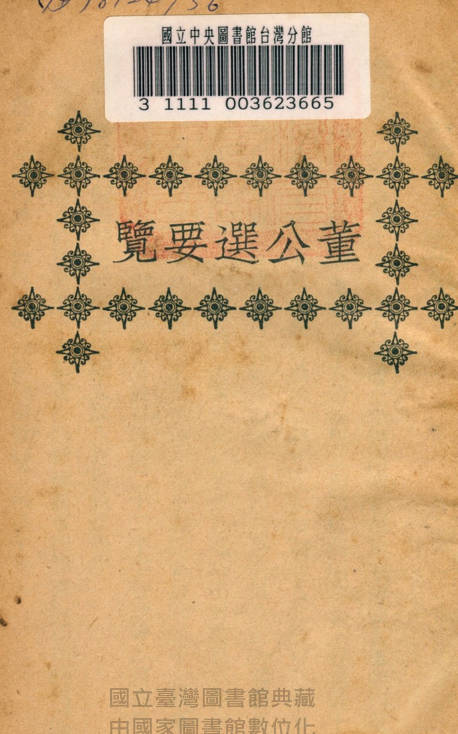 國立中央圖書館台灣分館
3 1111 003623665
董公選要覽
國立臺灣圖書館典藏
由國家圖書館數位化